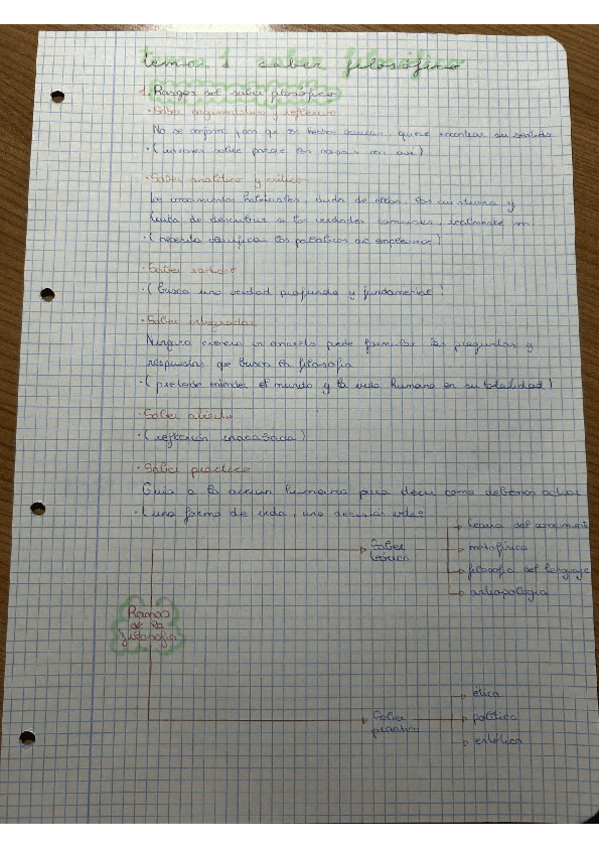 tema 1 saber filosófico
1. Rasgos del saber filosófico
· Saber argumentativo y reflexivo
No se conforma con que los hechos ocurran, quiere encontrar su sentido
· ( sobre porque las cosas son así )
· Saber analítico y crítico
los conocimientos habituales, duda de ellos, los cuestiona y
trata de descubrir si las verdades comunes, realmente
· ( necesita clarificar las palabras que empleamos )
· Saber radical
· ( busca una verdad profunda y fundamental )
· Saber integrador
Ninguna ciencia en concreto puede formular las preguntas y
respuestas que busca la filosofía
· ( pretende entender el mundo y la vida humana en su totalidad )
· Saber abierto
· ( reflexión inacabada )
· Saber práctico
Guía a la acción humana para decir como debemos actuar
· ( una forma de vida, una decisión vital
Ramas
de la
filosofía
Saber
teórico
teoría del conocimiento
metafísica
filosofía del lenguaje
antropología
Saber
práctico
ética
política
estética